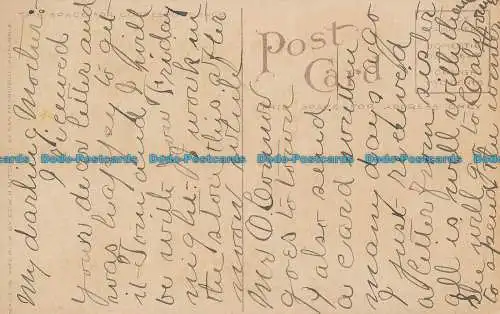 My darling Mother:
I received
your dear letter and
was happy to get
it Tom and I will
be with you Friday
night. I work in
the store this after
noon while
Mr O'Connor
goes to town
I also send
a card written
many days ago
I just received
a letter from sister
All is well with them
She will go to
to spend
Post
Card
THIS SPACE FOR ADDRESS
Dodo-Postcards Dodo-Postcards Dodo-Postcards Dodo-Postcards Dodo-Postcards